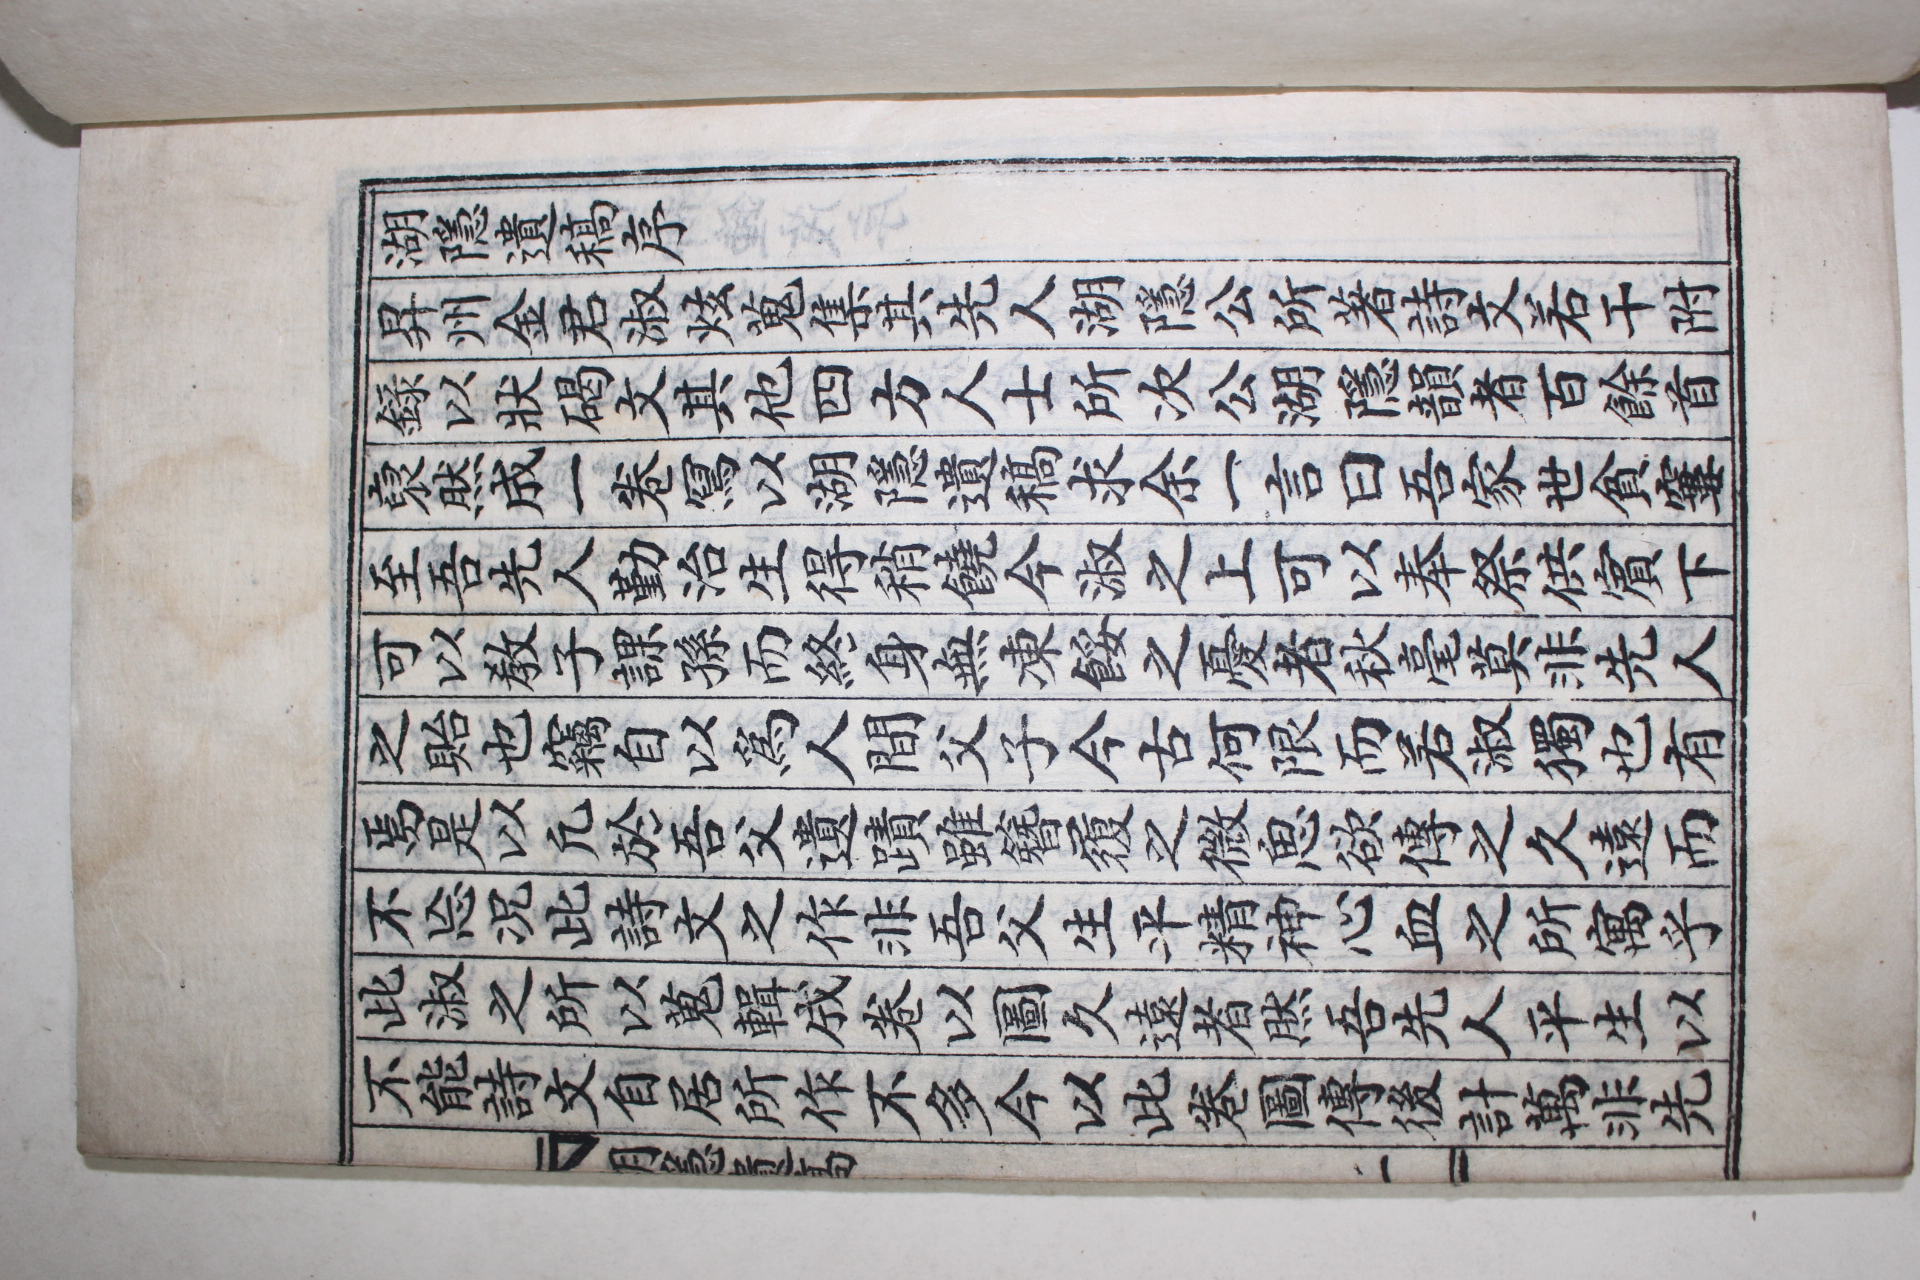 湖隱遺稿序
昇州金君淑炫蒐集其先人湖隱公所著詩文若干附
錄以狀碣文其他四方人士所次公湖隱韻者百餘首
裒然成一卷寫以湖隱遺稿求余一言曰吾家世貧窶
至吾先人勤治生得稍饒今淑之上可以奉祭供賓下
可以教子課孫而終身無凍餒之憂者秋毫莫非先人
之貽也竊自以爲人間父子今古何限而若淑獨也有
焉是以凢於吾父遺蹟雖簪履之微思欲傳之久遠而
不忘况此詩文之作非吾父生平精神心血之所寓乎
此淑之所以蒐輯成卷以圖久遠者然吾先人平生以
不能詩文自居所作不多今以此卷圖傳後計萬非先
湖隱遺稿 一